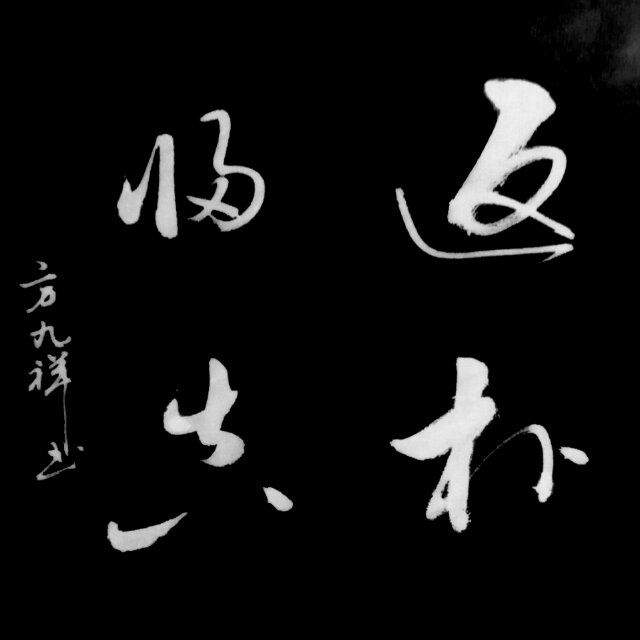 返朴
归真
方九祥书